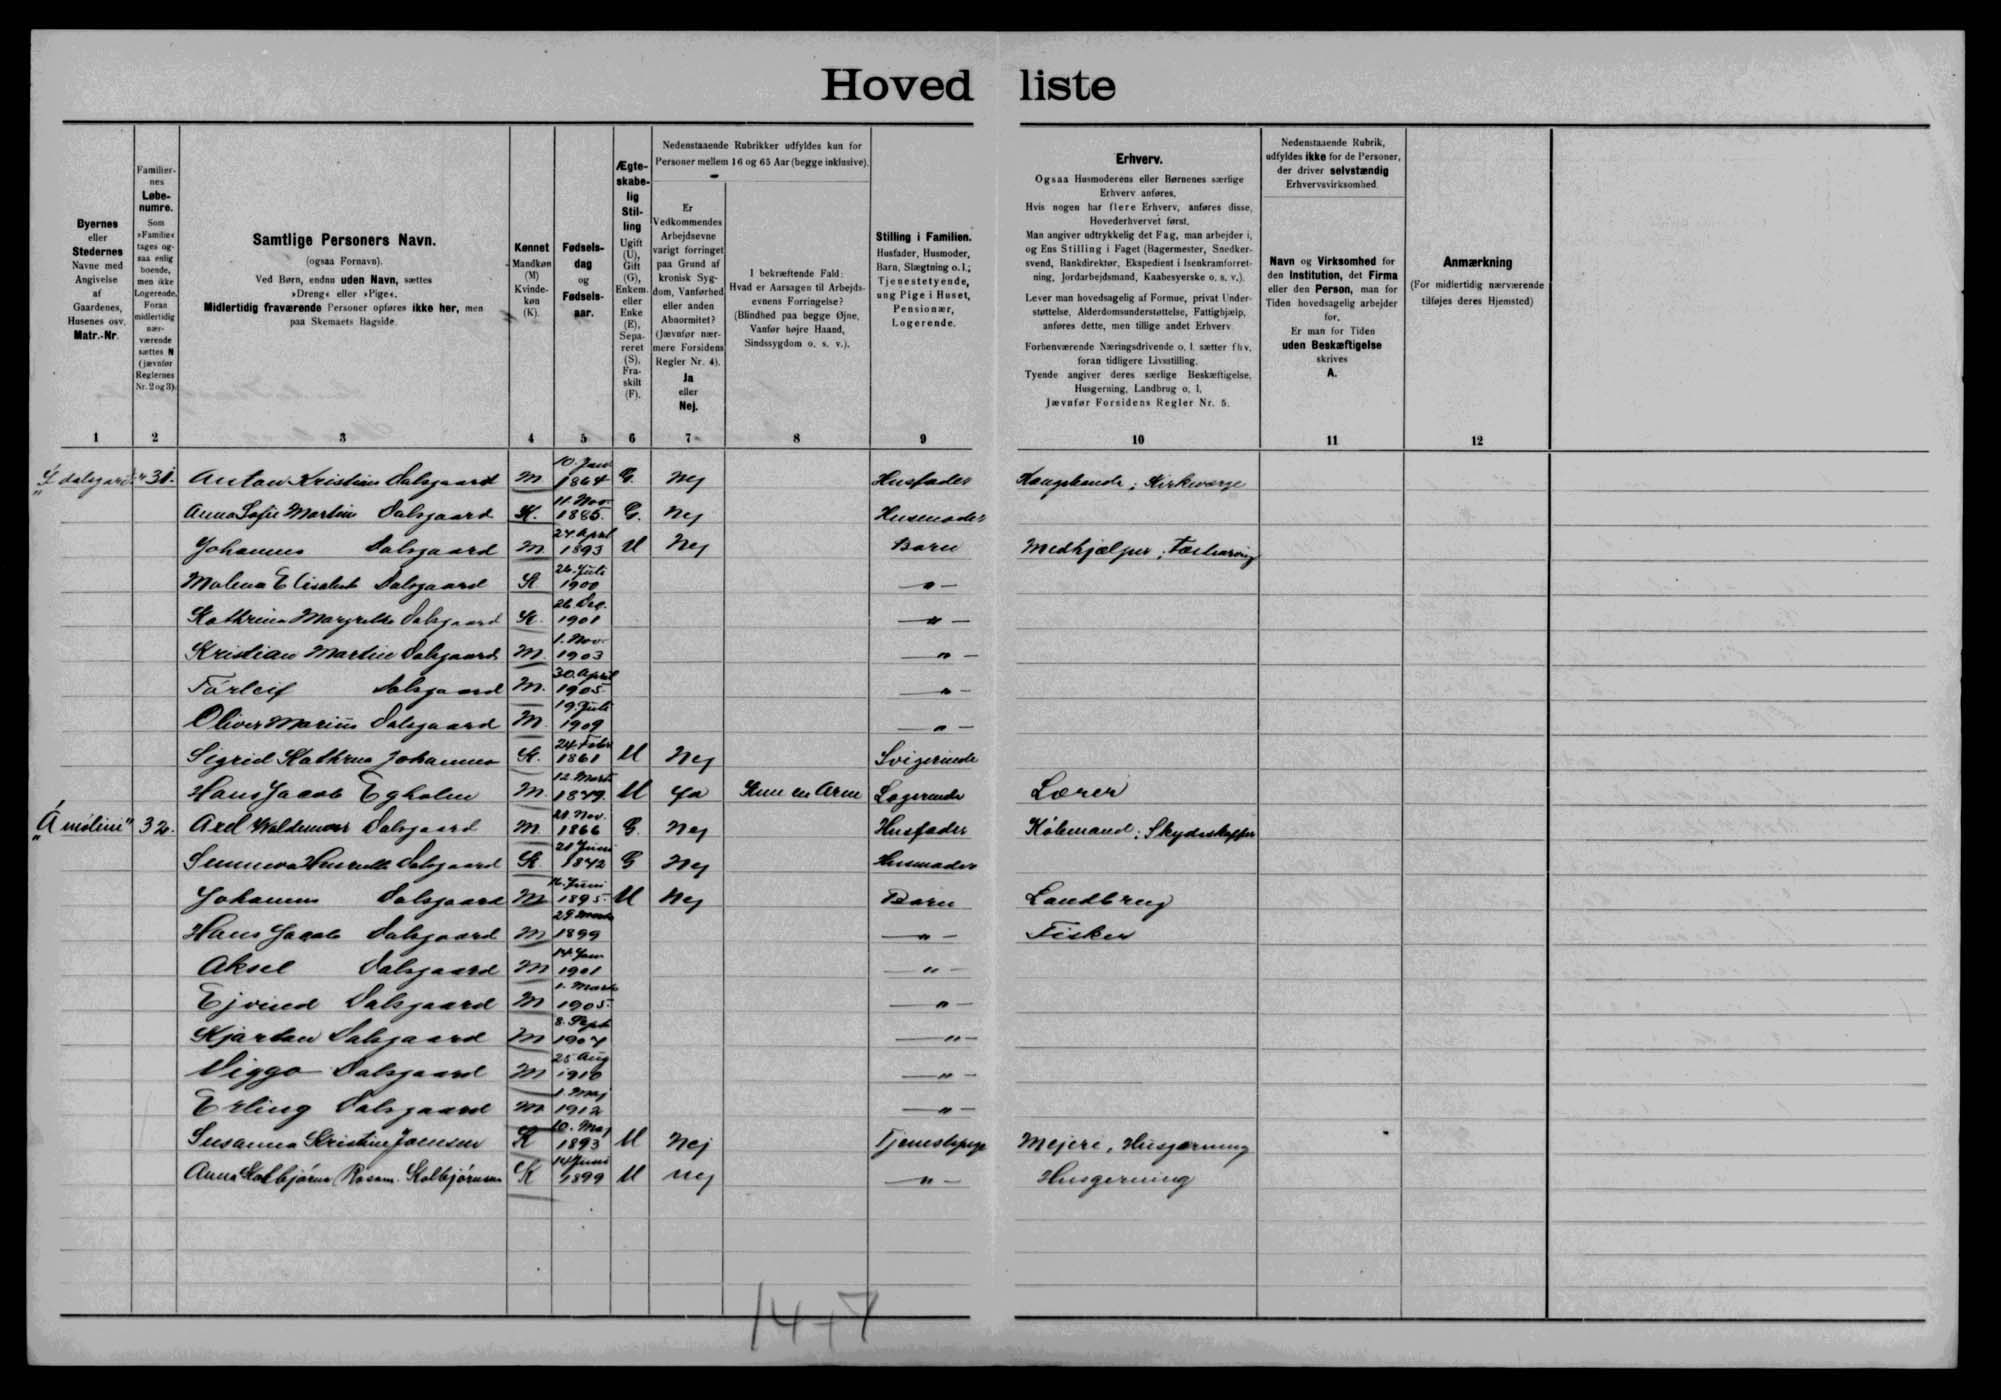 Hoved liste
Byernes
eller
Stedernes
Navne med
Angivelse
af
Gaardenes,
Husenes osv.
Matr.-Nr.
Familier-
nes
Løbe-
numre.
Som
»Familie«
tages og-
saa enlig
boende,
men ikke
Logerende.
Foran
midlertidig
nær-
værende
sættes N
(jævnfør
Reglernes
Nr. 2 og 3).
Samtlige Personers Navn.
(ogsaa Fornavn).
Ved Børn, endnu uden Navn, sættes
»Dreng« eller »Pige«.
Midlertidig fraværende Personer opføres ikke her, men
paa Skemaets Bagside.
Kønnet
Mandkøn
(M)
Kvinde-
køn
(K).
Fødsels-
dag
og
Fødsels-
aar.
Ægte-
skabe-
lig
Stil-
ling
Ugift
(U),
Gift
(G),
Enkem.
eller
Enke
(E),
Sepa-
reret
(S),
Fra-
skilt
(F).
Nedenstaaende Rubrikker udfyldes kun for
Personer mellem 16 og 65 Aar (begge inklusive).
Er
Vedkommendes
Arbejdsevne
varigt forringet
paa Grund af
kronisk Syg-
dom, Vanførhed
eller anden
Abnormitet?
(Jævnfør nær-
mere Forsidens
Regler Nr. 4).
Ja
eller
Nej.
I bekræftende Fald:
Hvad er Aarsagen til Arbejds-
evnens Forringelse?
(Blindhed paa begge Øjne,
Vanfør højre Haand,
Sindssygdom o. s. v.).
Stilling i Familien.
Husfader, Husmoder,
Barn, Slægtning o.l.;
Tjenestetyende,
ung Pige i Huset,
Pensionær,
Logerende.
Erhverv.
Ogsaa Husmoderens eller Børnenes særlige
Erhverv anføres.
Hvis nogen har flere Erhverv, anføres disse,
Hovederhvervet først.
Man angiver udtrykkelig det Fag, man arbejder i,
og Ens Stilling i Faget (Bagermester, Snedker-
svend, Bankdirektør, Ekspedient i Isenkramforret-
ning, Jordarbejdsmand, Kaabesyerske o. s. v.).
Lever man hovedsagelig af Formue, privat Under-
støttelse, Alderdomsunderstøttelse, Fattighjælp,
anføres dette, men tillige andet Erhverv.
Forhenværende Næringsdrivende o. l. sætter fhv.
foran tidligere Livsstilling.
Tyende angiver deres særlige Beskæftigelse,
Husgerning, Landbrug o. l.
Jævnfør Forsidens Regler Nr. 5.
Nedenstaaende Rubrik,
udfyldes ikke for de Personer,
der driver selvstændig
Erhvervsvirksomhed.
Navn og Virksomhed for
den Institution, det Firma
eller den Person, man for
Tiden hovedsagelig arbejder
for.
Er man for Tiden
uden Beskæftigelse
skrives
A.
Anmærkning
(For midlertidig nærværende
tilføjes deres Hjemsted)
1 2 3 4 5 6 7 8 9 10 11 12
31. Anton Kristian Dalsgaard M 10. Jan 1864 G. Nej Husfader Kongsbonde; Kirkeværge
Anna Sofie Martine Dalsgaard K. 11. Nov. G. Nej Husmoder
Johannes Dalsgaard M 24. April 1893 U Nej Barn Medhjælper;
Malena Elisabet Dalsgaard K 26. Juli 1900 " —
Kathrina Margrethe Dalsgaard K. 26. Dec. 1901 " —
Kristian Martin Dalsgaard M 1. Nov. 1903 " —
Tórleif Dalsgaard M. 30. April 1905 " —
Oliver Marius Dalsgaard M. 19. Juli 1909 " —
Sigrid Kathrina K. 24. Febr 1861 U Nej Svigerinde
Hans Jacob Egholm M. 12. Marts 1849. U Ja Kun en Arm Logerende Lærer
32. Axel Waldemar Dalsgaard M Nov. 1866 G. Nej Husfader Købmand; Skydsskaffer
Sunneva Dalsgaard K Juni G Nej Husmoder
Johannes Dalsgaard M 16. Juni 1895 U Nej Barn Landbrug
Hans Jacob Dalsgaard M 29. Marts 1899 " — Fisker
Aksel Dalsgaard M 14. Jan 1901 " —
Ejvind Dalsgaard M 1. Marts 1905 " —
Kjartan Dalsgaard M 8. Sept 1907 " —
Viggo Dalsgaard M 25. Aug 1910 " —
Erling Dalsgaard M 1. Maj 1912 " —
Susanna Kristine Joensen K 10. Maj 1893 U Nej Tjenestepige Mejeri, Husgerning
Anna Kolbjørnsen K Juni 1899 U Nej " — Husgerning
14+7